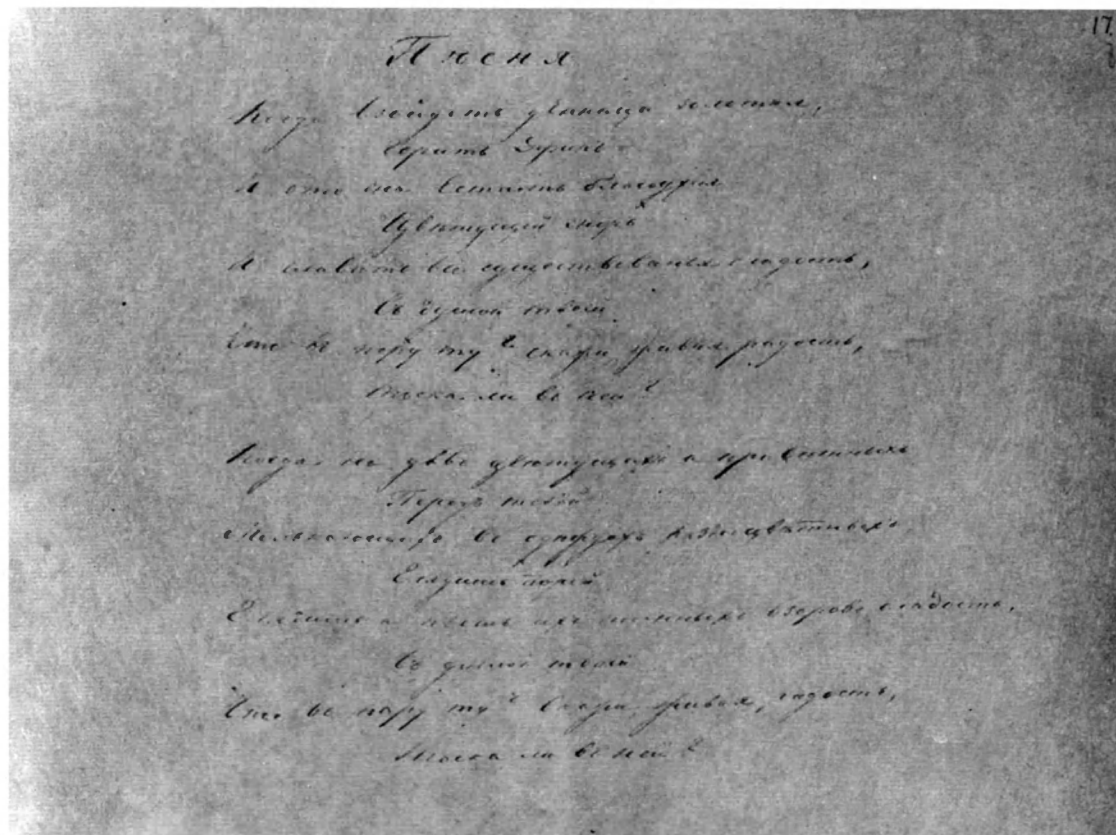 17
Пѣсня
Когда взойдетъ денница золотая,
Горитъ Эфиръ
И ото сна встаетъ благоухая
Цвѣтущій міръ
И славитъ все существованья сладость,
Съ душой твоей
Что въ пору ту? скажи, живая радость,
Тоска ли въ ней?
Когда на дѣвъ цвѣтущихъ и привѣтныхъ
Передъ тобой
Мелькающихъ въ одеждахъ разноцвѣтныхъ
Глядишь порой
Глядишь и пьешь ихъ томныхъ взоровъ сладость,
Съ душой твоей
Что въ пору ту? Скажи, живая, радость,
Тоска ли въ ней?